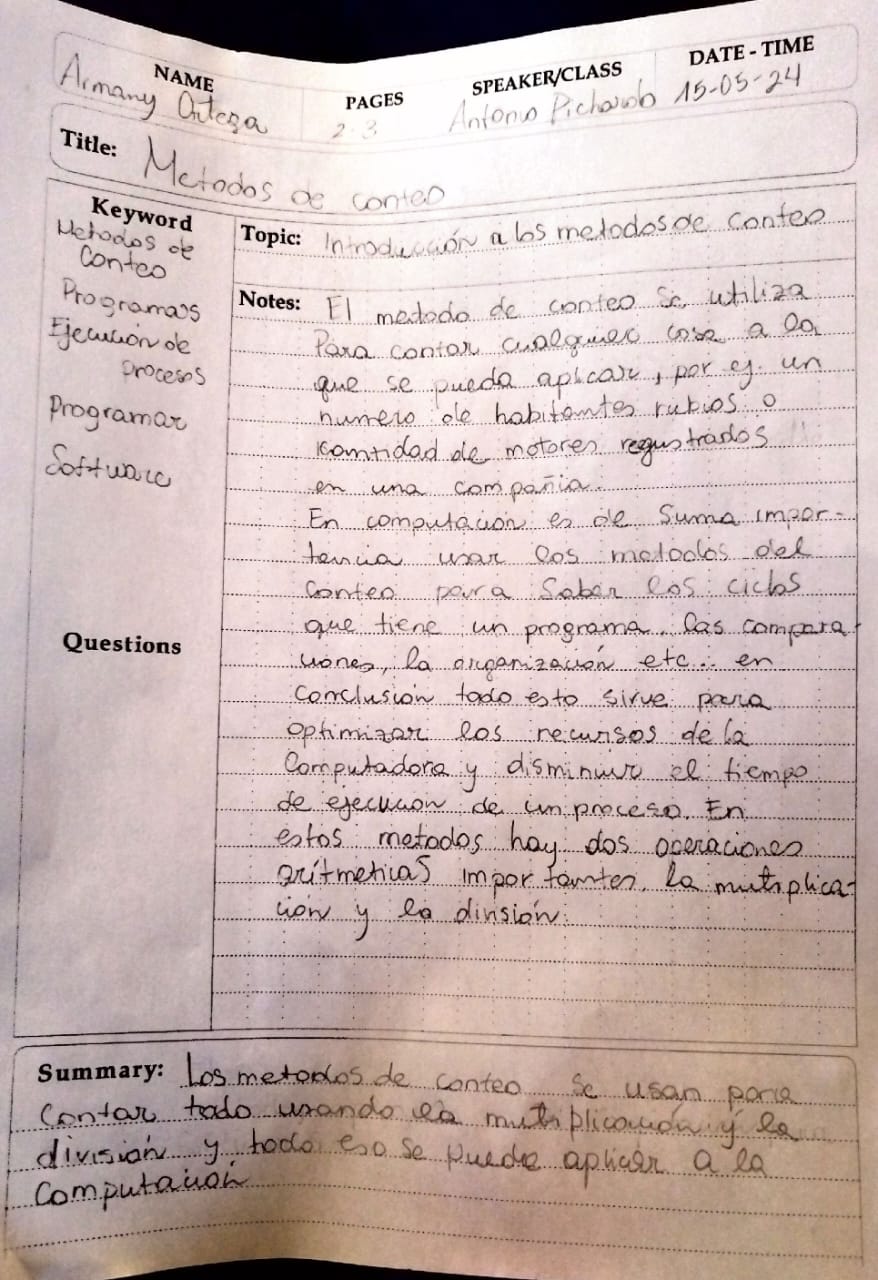 NAME PAGES SPEAKER/CLASS DATE - TIME
Armany Ortega 2-3 Antonio Pichardo 15-05-24
Title: Metodos de conteo
Keyword
Metodos de
Conteo
Programas
Ejecución de
procesos
Programar
Software
Questions
Topic: Introducción a los metodos de conteo
Notes: El metodo de conteo se utiliza
Para contar cualquier cosa a la
que se pueda aplicar, por ej. un
numero de habitantes rubios o
cantidad de motores registrados
en una compañia.
En computación es de suma impor-
tancia usar los metodos del
conteo para saber los ciclos
que tiene un programa, las compara-
ciones, la organización etc... en
conclusion todo esto sirve para
optimizar los recursos de la
Computadora y disminuir el tiempo
de ejecucion de un proceso. En
estos metodos hay dos operaciones
aritmeticas importantes, la multiplica-
ción y la división.
Summary: Los metodos de conteo se usan para
contar todo usando la multiplicación y la
división y todo eso se puede aplicar a la
Computación